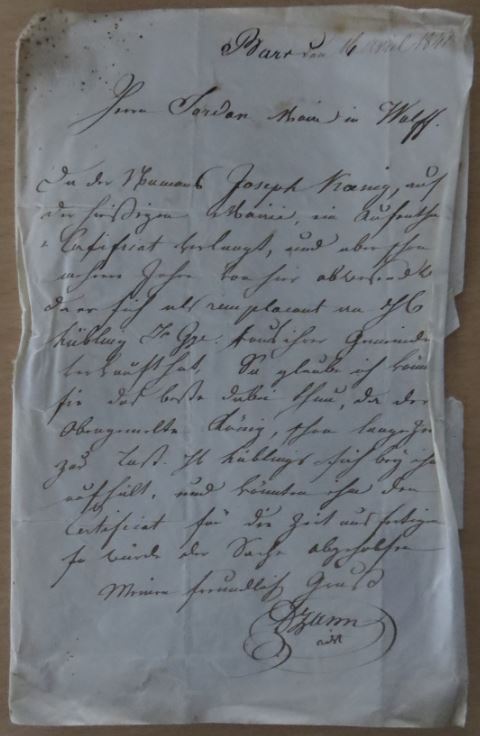 Barr den 16 avril 184
Herrn Jordan Maire in Walff.
Da der Namens Joseph Kœnig, auf
der hiesigen Mairie, ein Aufentha
Certificat verlangt, und aber schon
mehrere Jahre von hier abwesend
da er sich als remplacant
aus ihrer Gemeinde
verkauft hat, So glaube ich
sie das beste dabei thun, da der
Obengemelte König, schon lange
zur Last
aufhält, und könnten ihm den
Certificat für die Zeit ausfertigen
so würde der Sache abgeholfen
Meinen freundlich Gruss